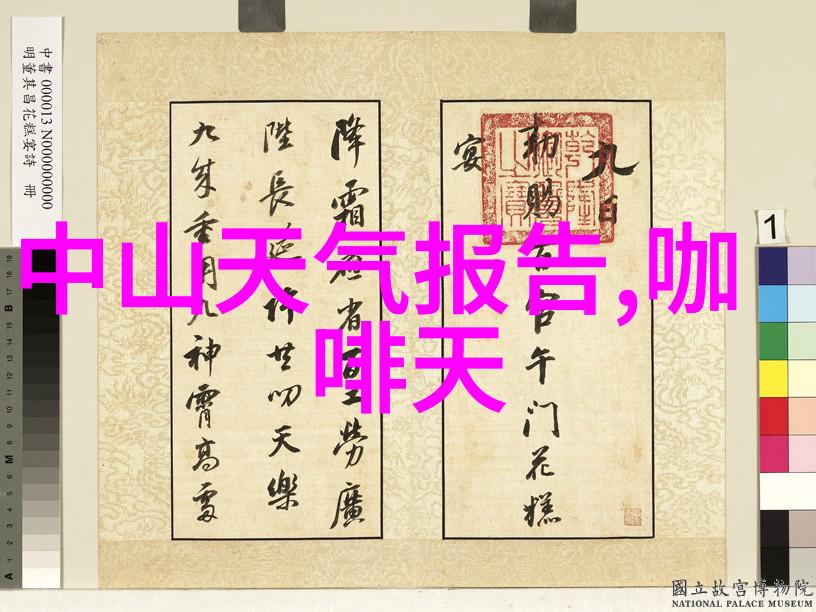 中山天气报告,咖
啡天
九日
勅賜百官午门花糕
宴
降霜
省
勞廣
陛長
許共叨天樂
九成重
九神霄高
明董其昌花糕宴詩 冊
中書 000013 N000000000
1
國立故宮博物院
NATIONAL PALACE MUSEUM